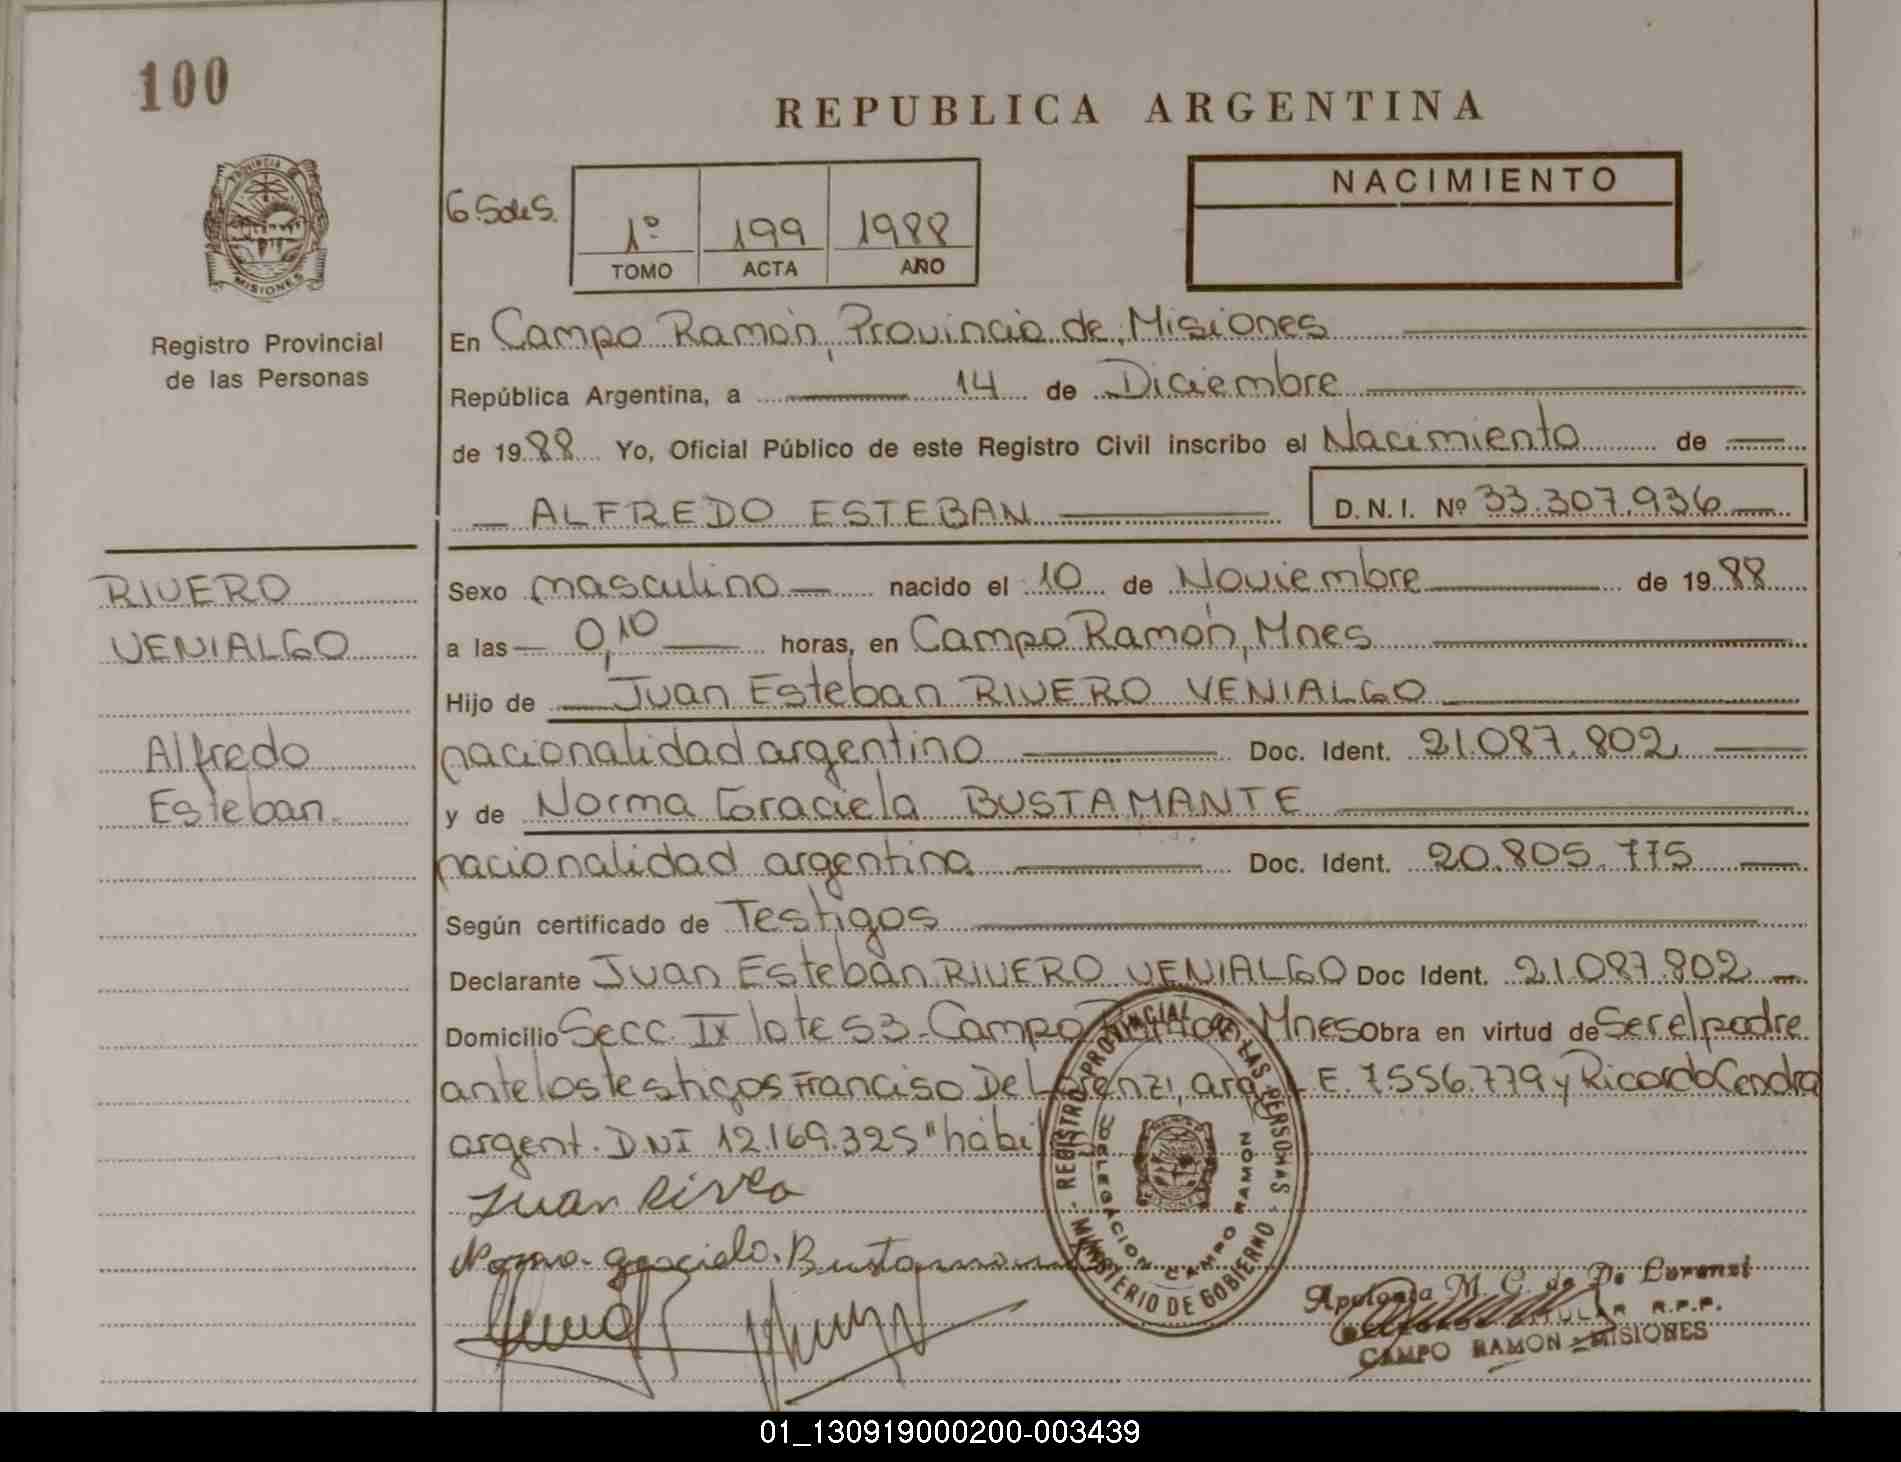 100
REPUBLICA ARGENTINA
PROVINCIA
MISIONES
Registro Provincial
de las Personas
1º 199 1988
TOMO ACTA AÑO
NACIMIENTO
En Campo Ramón, Provincia de Misiones
República Argentina, a 14 de Diciembre
de 1988 Yo, Oficial Público de este Registro Civil inscribo el Nacimiento de
ALFREDO ESTEBAN D.N.I. Nº 33.307.936
RIVERO
VENIALGO
Alfredo
Esteban
Sexo masculino nacido el 10 de Noviembre de 1988
a las 0,10 horas, en Campo Ramón, Mnes
Hijo de Juan Esteban RIVERO VENIALGO
nacionalidad argentino Doc. Ident. 21.087.802
y de Norma Graciela BUSTAMANTE
nacionalidad argentina Doc. Ident. 20.805.775
Según certificado de Testigos
Declarante Juan Esteban RIVERO VENIALGO Doc Ident. 21.087.802
Domicilio Secc. IX lote 53 - Campo Mnes obra en virtud de Ser el padre
ante los testigos Franciso De Lorenzi, arg. L.E. 7.556.779 y Ricardo Cendra
argent. DNI 12.169.325 "
Juan
Norma Graciela Bustamante
REGISTRO PROVINCIAL DE LAS PERSONAS
MINISTERIO DE GOBIERNO
DELEGACION CAMPO RAMON
Apolonia M. G. de De Lorenzi
TITULAR R.P.P.
CAMPO RAMON - MISIONES
01_130919000200-003439